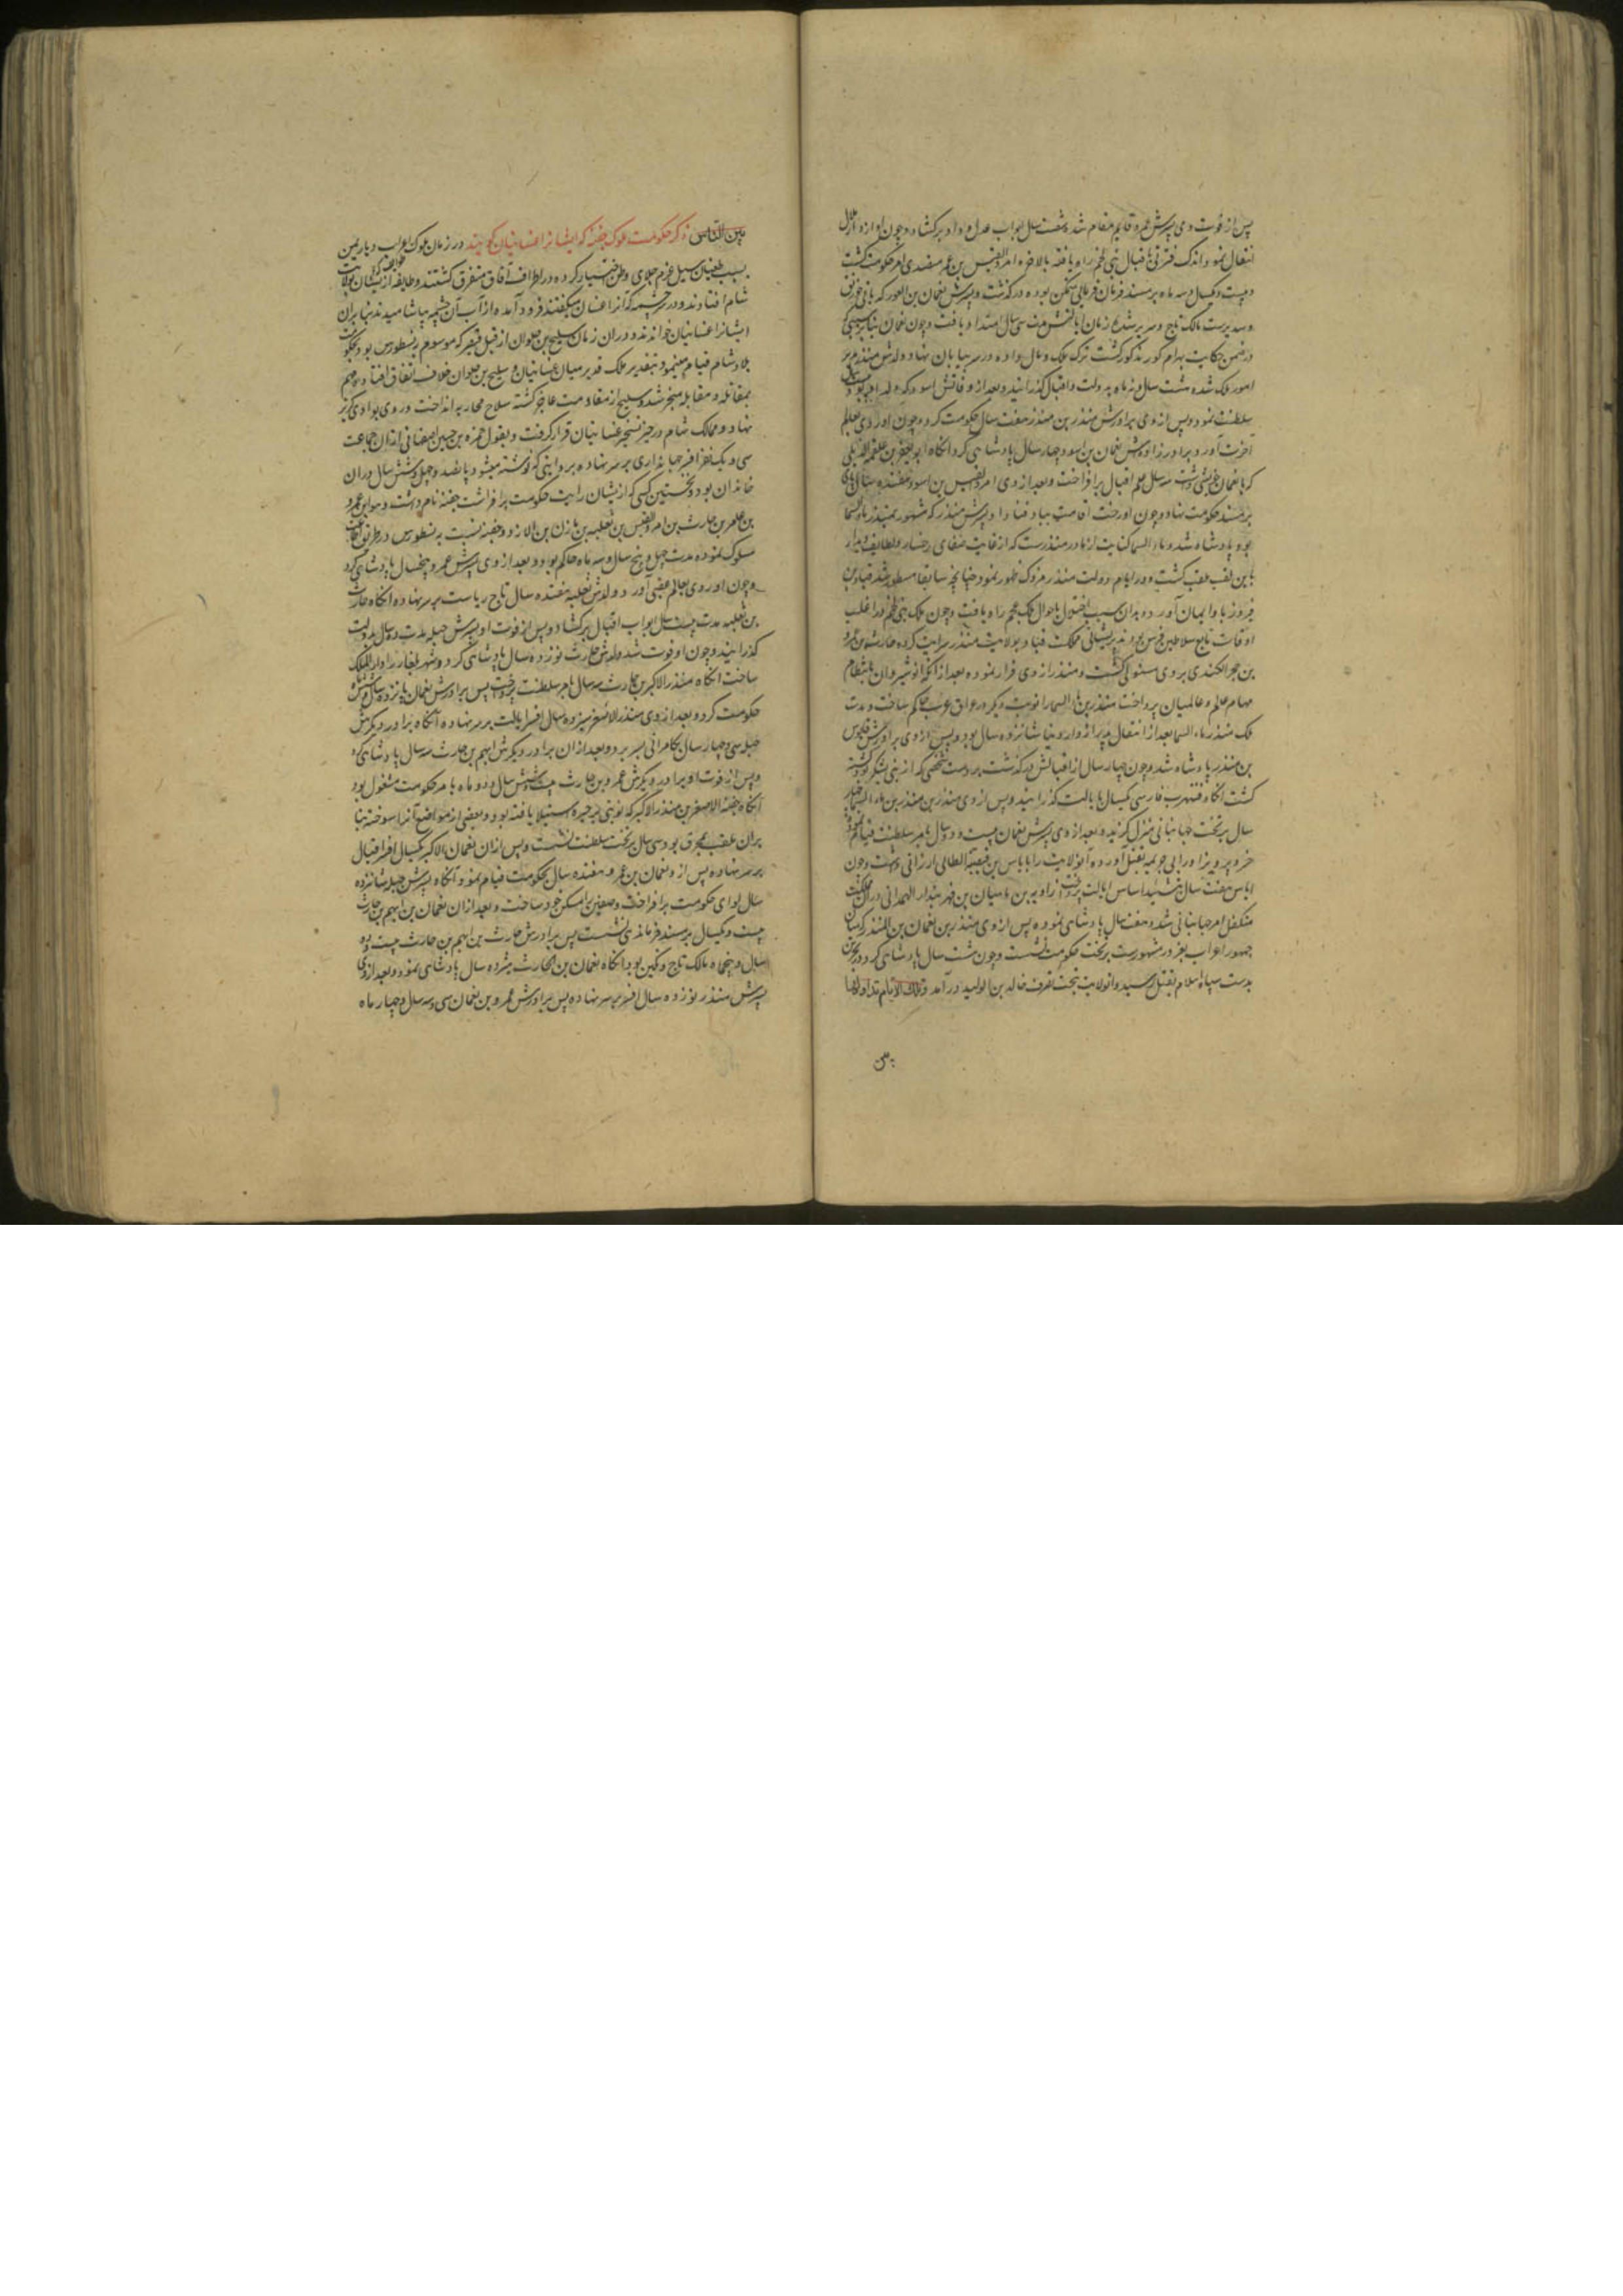 پس از فوت وی پسرش عمرو قایم مقام شد و شصت سال ابواب عدل و داد برکشاد و چون او از دار ملال
انتقال نمود اندک فترتی باقبال بنی لخم راه یافته بالاخره امرؤ القیس بن عمرو متصدی امر حکومت گشت
و بیست و یکسال و سه ماه بر مسند فرمان فرمایی متمکن بوده درگذشت و پسرش نعمان بن الاعور که بانی خورنق
و سدیر است مالک تاج و سریر شد و زمان ایالتش مدت سی سال امتداد یافت و چون نعمان بنابر سببی که
در ضمن حکایت بهرام گور مذکور گشت ترک ملک و مال داده و سر در بیابان نهاد ولدش منذر مدبر
امور ملک شده هشت سال و نه ماه بدولت و اقبال گذرانید و بعد از وفاتش اسود که ولد اکبر بود
سلطنت نمود و پس از وی برادرش منذر بن منذر هفت سال حکومت کرد و چون او روی بعالم
آخرت آورد برادرزاده‌اش نعمان بن اسود چهار سال پادشاهی کرد آنگاه ابو یعفر بن علقمه الذمیلی
که با نعمان خویشی داشت سه سال علم اقبال برافراخت و بعد از وی امرؤ القیس بن اسود هفده سال پای
بر مسند حکومت نهاد و چون او رخت اقامت بباد فنا داد پسرش منذر که مشهور بمنذر ماء السما
بود پادشاه شد و ماء السما کنایت از مادر منذرست که از غایت صفای رخسار و لطایف دیدار
باین لقب ملقب گشت و در ایام دولت منذر مزدک ظهور نمود چنانچه سابقا مسطور شد قباد بن
فیروز باو ایمان آورد و بدان سبب اختلال باحوال ملک عجم راه یافت و چون ملک بنی لخم در اغلب
اوقات تابع سلاطین فرس بودند پریشانی مملکت قباد بولایت منذر سرایت کرده حارث بن عمرو
بن حجر الکندی بر وی مستولی گشت و منذر از وی فرار نموده بعد از آنکه انوشیروان بانتظام
مهام عالم و عالمیان پرداخت منذر بن ماء السما را نوبت دیگر در عراق عرب حاکم ساخت و مدت
ملک منذر ماء السما بعد از انتقال پدر از دار دنیا شانزده سال بود و پس از وی برادرش قابوس
بن منذر پادشاه شد و چون چهار سال از اقبالش درگذشت بر دست شخصی که از بنی یشکر بود کشته
گشت آنگاه فیشهرت فارسی یکسال بایالت گذرانید و پس از وی منذر بن منذر بن ماء السما چهار
سال بر تخت جهانبانی منزل گزید و بعد از وی پسرش نعمان بیست و دو سال بامر سلطنت قیام نمود
خسرو پرویز او را بی جریمه بقتل آورده آن ولایت را بایاس بن قبیصة الطایی ارزانی داشت و چون
ایاس هفت سال بتشیید اساس ایالت پرداخت زادویه بن ماهیان بن مهر بنداد الهمدانی در آن مملکت
متکفل امر جهانبانی شد و هفده سال پادشاهی نموده پس از وی منذر بن نعمان بن المنذر که میان
جمهور اعراب بغرور مشهورست بر تخت حکومت نشست و چون هشت سال پادشاهی کرد در بحرین
بدست سپاه اسلام بقتل رسید و آن ولایت بتحت تصرف خالد بن الولید درآمد و تلک الایام نداولها
بین
بین الناس ذکر حکومت ملوک جفنه که ایشانرا غسانیان گویند در زمان ملوک اعراب دیار یمن
بسبب طغیان سیل عرم جلای وطن اختیار کرده در اطراف آفاق متفرق گشتند و طایفه از ایشان بولایت
شام افتادند و در سر چشمه که آنرا غسان میگفتند فرود آمده از آب آن چشمه بیاشامیدند بنابران
ایشانرا غسانیان خواندند و دران زمان سلیح بن حلوان از قبل قیصر که موسوم بنسطورس بود بحکومت
بلاد شام قیام مینمود و بتقدیر ملک قدیر میان غسانیان و سلیح بن حلوان خلاف اتفاق افتاده مهم
بمقاتله و مقابله منجر شد و سلیح از مقاومت عاجز گشته سلاح محاربه انداخت و روی بوادی گریز
نهاد و ممالک شام در حیز تسخیر غسانیان قرار گرفت و بقول حمزه بن حسین اصفهانی ازان جماعت
سی و یک نفر افسر جهانداری بر سر نهاده بروایتی که نوشته میشود پانصد و چهل و شش سال دران
خاندان بود و نخستین کسی که ازیشان رایت حکومت برافراشت جفنه نام داشت و هو ابن عمرو
بن عامر بن حارث بن امرؤ القیس بن ثعلبه بن مازن بن الازد و جفنه نسبت به نسطورس در طریق اطاعت
سلوک نموده مدت چهل و پنج سال و سه ماه حاکم بود و بعد از وی پسرش عمرو پنجسال پادشاهی کرد
و چون او روی بعالم عقبی آورد ولدش ثعلبه هفده سال تاج ریاست بر سر نهاد آنگاه حارث
بن ثعلبه مدت بیست سال ابواب اقبال برکشاد و پس از فوت او پسرش جبله مدت ده سال بدولت
گذرانید و چون او فوت شد ولدش حارث نوزده سال پادشاهی کرد و شهر بلقا را دار الملک
ساخت آنگاه منذر الاکبر بن حارث سه سال بامر سلطنت پرداخت پس برادرش نعمان پانزده سال و شش ماه
حکومت کرد و بعد از وی منذر الاصغر سیزده سال افسر ایالت بر سر نهاد آنگاه برادر دیگرش
جبله سی و چهار سال بکامرانی بسر برد و بعد ازان برادر دیگرش ایهم بن حارث سه سال پادشاهی کرد
و پس از فوت او برادر دیگرش عمرو بن حارث بیست و شش سال و دو ماه بامر حکومت مشغول بود
آنگاه جفنة الاصغر بن منذر الاکبر که نوبتی بر حیره استیلا یافته بود و بعضی از مواضع آنرا سوخته بنا
بران ملقب بمحرق بود سی سال بر تخت سلطنت نشست و پس ازان نعمان الاکبر یکسال افسر اقبال
بر سر نهاده پس ازو نعمان بن عمرو هفده سال بحکومت قیام نمود آنگاه پسرش جبله شانزده
سال لوای حکومت برافراخت و صفین را مسکن خود ساخت و بعد ازان نعمان بن ایهم بن حارث
بیست و یکسال بر مسند فرماندهی نشست پس برادرش حارث بن ایهم بن حارث بیست و دو
سال و پنجماه مالک تاج و نگین بود آنگاه نعمان بن الحارث هژده سال پادشاهی نمود و بعد از وی
پسرش منذر نوزده سال افسر بر سر نهاده پس برادرش عمرو بن نعمان سی و سه سال و چهار ماه